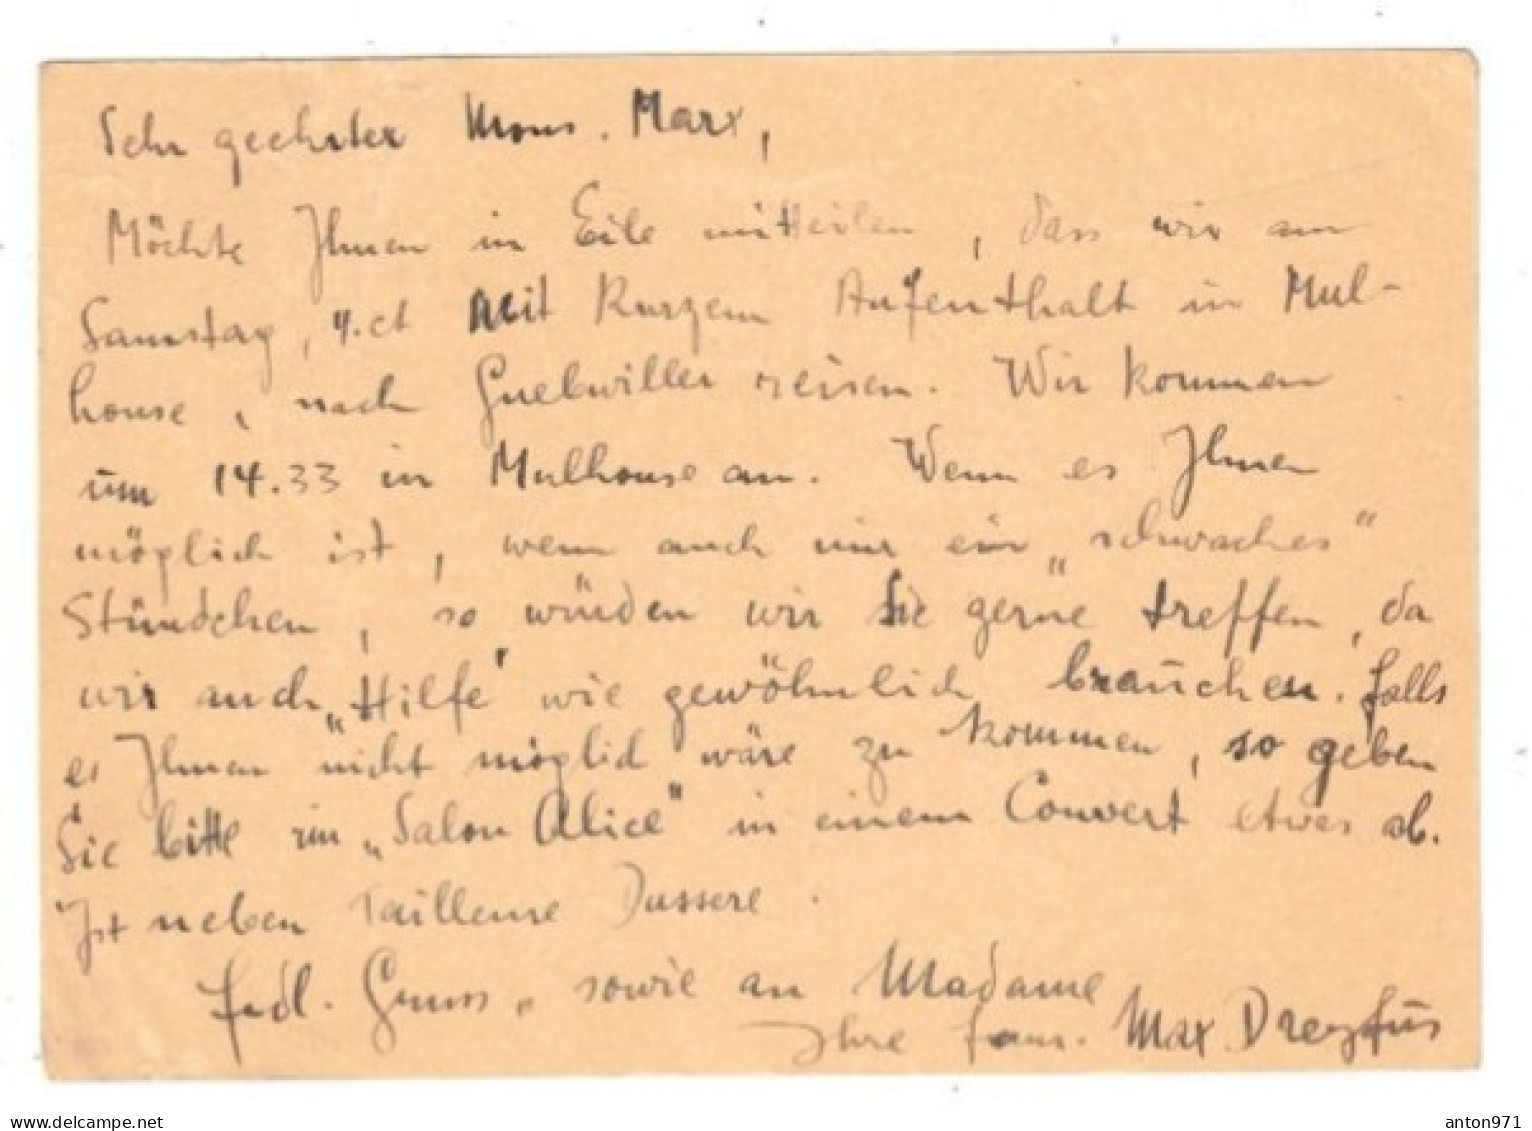 Sehr geehrter Mons. Marx,
Möchte Ihnen in Eile mitteilen, dass wir am
Samstag, 4. ct mit kurzem Aufenthalt in Mul-
house, nach Guebwiller reisen. Wir kommen
um 14.33 in Mulhouse an. Wenn es Ihnen
möglich ist, wenn auch nur ein „schwaches“
Stündchen, so würden wir Sie gerne treffen, da
wir auch „Hilfe“ wie gewöhnlich brauchen. Falls
es Ihnen nicht möglich wäre zu kommen, so geben
Sie bitte im „Salon Alice“ in einem Couvert etwas ab.
Ist neben Tailleure Dussere.
Frdl. Gruss, sowie an Madame
Ihre Fam. Max Dreyfus
www.delcampe.net
anton971